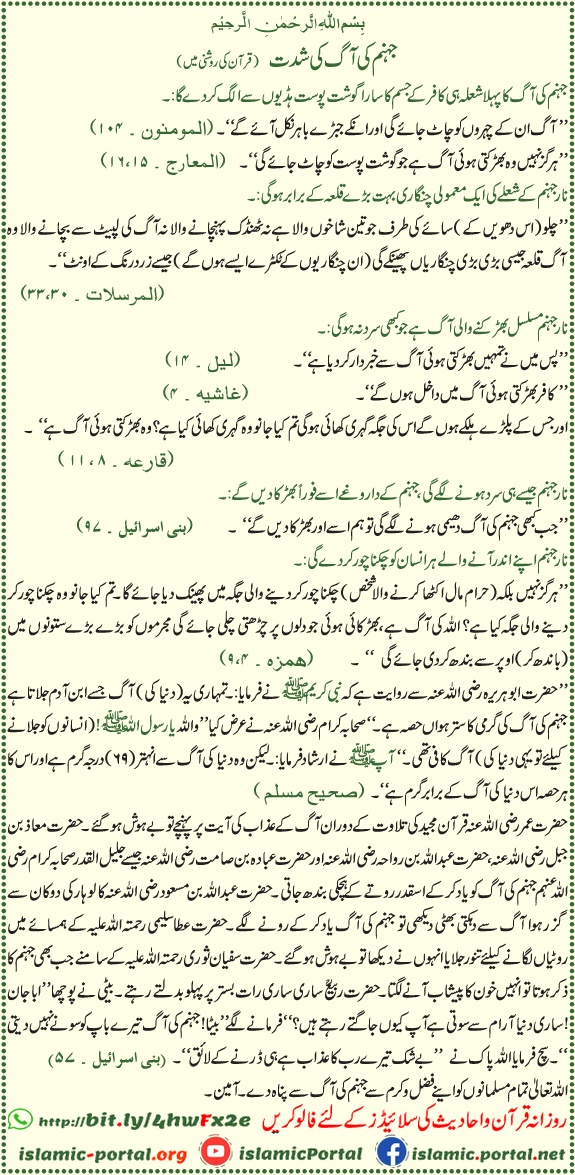 بِسْمِ اللهِ الرَّحْمٰنِ الرَّحِيْمِ
جہنم کی آگ کی شدت (قرآن کی روشنی میں)
جہنم کی آگ کا پہلا شعلہ ہی کافر کے جسم کا سارا گوشت پوست ہڈیوں سے الگ کر دے گا:۔
’’آگ ان کے چہروں کو چاٹ جائے گی اور انکے جبڑے باہر نکل آئے گے‘‘۔ (المومنون ۔ ۱۰۴)
’’ہرگز نہیں وہ بھڑکتی ہوئی آگ ہے جو گوشت پوست کو چاٹ جائے گی‘‘۔ (المعارج ۔ ۱۶،۱۵)
نار جہنم کے شعلے کی ایک معمولی چنگاری بہت بڑے قلعہ کے برابر ہو گی:۔
’’چلو (اس دھویں کے) سائے کی طرف جو تین شاخوں والا ہے نہ ٹھنڈک پہنچانے والا نہ آگ کی لپیٹ سے بچانے والا وہ
آگ قلعہ جیسی بڑی بڑی چنگاریاں پھینکے گی (ان چنگاریوں کے ٹکڑے ایسے ہوں گے) جیسے زرد رنگ کے اونٹ‘‘۔
(المرسلات ۔ ۳۳،۳۰)
نار جہنم مسلسل بھڑکنے والی آگ ہے جو کبھی سرد نہ ہو گی:۔
’’پس میں نے تمہیں بھڑکتی ہوئی آگ سے خبردار کر دیا ہے‘‘۔ (لیل ۔ ۱۴)
’’کافر بھڑکتی ہوئی آگ میں داخل ہوں گے‘‘۔ (غاشیہ ۔ ۴)
اور جس کے پلڑے ہلکے ہوں گے اس کی جگہ گہری کھائی ہو گی تم کیا جانو وہ گہری کھائی کیا ہے؟ وہ بھڑکتی ہوئی آگ ہے‘‘ ۔
(قارعہ ۔ ۱۱،۸)
نار جہنم جیسے ہی سرد ہونے لگے گی، جہنم کے داروغے اسے فوراً بھڑکا دیں گے:۔
’’جب کبھی جہنم کی آگ دھیمی ہونے لگے گی تو ہم اسے اور بھڑکا دیں گے‘‘ ۔ (بنی اسرائیل ۔ ۹۷)
نار جہنم اپنے اندر آنے والے ہر انسان کو چکنا چور کر دے گی:۔
’’ہرگز نہیں بلکہ (حرام مال اکٹھا کرنے والا شخص) چکنا چور کر دینے والی جگہ میں پھینک دیا جائے گا۔ تم کیا جانو وہ چکنا چور کر
دینے والی جگہ کیا ہے؟ اللہ کی آگ ہے، بھڑکائی ہوئی جو دلوں پر چڑھتی چلی جائے گی مجرموں کو بڑے بڑے ستونوں میں
(باندھ کر) اوپر سے بند کر دی جائے گی ‘‘ ۔ (ھمزہ ۔ ۹،۴)
’’حضرت ابو ہریرہ رضی اللہ عنہ سے روایت ہے کہ نبی کریم ﷺ نے فرمایا:۔ تمہاری یہ (دنیا کی) آگ جسے ابن آدم جلاتا ہے
جہنم کی آگ کی گرمی کا ستر ہواں حصہ ہے۔‘‘ صحابہ کرام رضی اللہ عنہ نے عرض کیا’’واللہ یا رسول اللہ ﷺ! (انسانوں کو جلانے
کیلئے تو یہی دنیا کی) آگ کافی تھی۔‘‘ آپ ﷺ نے ارشاد فرمایا:۔ لیکن وہ دنیا کی آگ سے انہتر (۶۹) درجہ گرم ہے اور اس کا
ہر حصہ اس دنیا کی آگ کے برابر گرم ہے‘‘۔ (صحیح مسلم)
حضرت عمر رضی اللہ عنہ قرآن مجید کی تلاوت کے دوران آگ کے عذاب کی آیت پر پہنچے تو بے ہوش ہو گئے۔ حضرت معاذ بن
جبل رضی اللہ عنہ، حضرت عبداللہ بن رواحہ رضی اللہ عنہ اور حضرت عبادہ بن صامت رضی اللہ عنہ جیسے جلیل القدر صحابہ کرام رضی
اللہ عنہم جہنم کی آگ کو یاد کر کے اسقدر روتے کے ہچکی بندھ جاتی ۔ حضرت عبداللہ بن مسعود رضی اللہ عنہ کا لوہار کی دوکان سے
گزر ہوا آگ سے دہکتی بھٹی دیکھی تو جہنم کی آگ یاد کر کے رونے لگے۔ حضرت عطا سلیمی رحمتہ اللہ علیہ کے ہمسائے میں
روٹیاں لگانے کیلئے تنور جلایا انہوں نے دیکھا تو بے ہوش ہو گئے۔ حضرت سفیان ثوری رحمتہ اللہ علیہ کے سامنے جب بھی جہنم کا
ذکر ہوتا تو انہیں خون کا پیشاب آنے لگتا۔ حضرت ربیع ساری ساری رات بستر پر پہلو بدلتے رہتے ۔ بیٹی نے پوچھا’’ابا جان
!ساری دنیا آرام سے سوتی ہے آپ کیوں جاگتے رہتے ہیں؟‘‘ فرمانے لگے’’بیٹا! جہنم کی آگ تیرے باپ کو سونے نہیں دیتی
‘‘۔ سچ فرمایا اللہ پاک نے ’’بے شک تیرے رب کا عذاب ہے ہی ڈرنے کے لائق‘‘۔ (بنی اسرائیل ۔ ۵۷)
اللہ تعالیٰ تمام مسلمانوں کو اپنے فضل و کرم سے جہنم کی آگ سے پناہ دے۔ آمین۔
روزانہ قرآن و احادیث کی سلائیڈز کے لئے فالو کریں http://bit.ly/4hwFx2e
islamic-portal.org islamicPortal islamic.portal.net